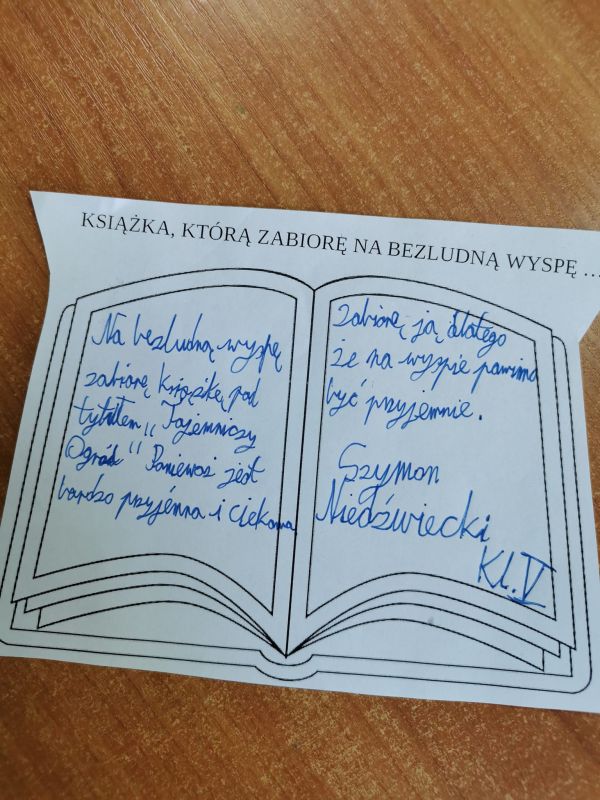 KSIĄŻKA, KTÓRĄ ZABIORĘ NA BEZLUDNĄ WYSPĘ ...
Na bezludną wyspę
zabiorę książkę pod
tytułem „ Tajemniczy
Ogród" Ponieważ jest
bardzo przyjemna i ciekawa
Zabiorę ją dlatego
że na wyspie powinno
być przyjemnie.
Szymon
Niedźwiecki
Kl. V